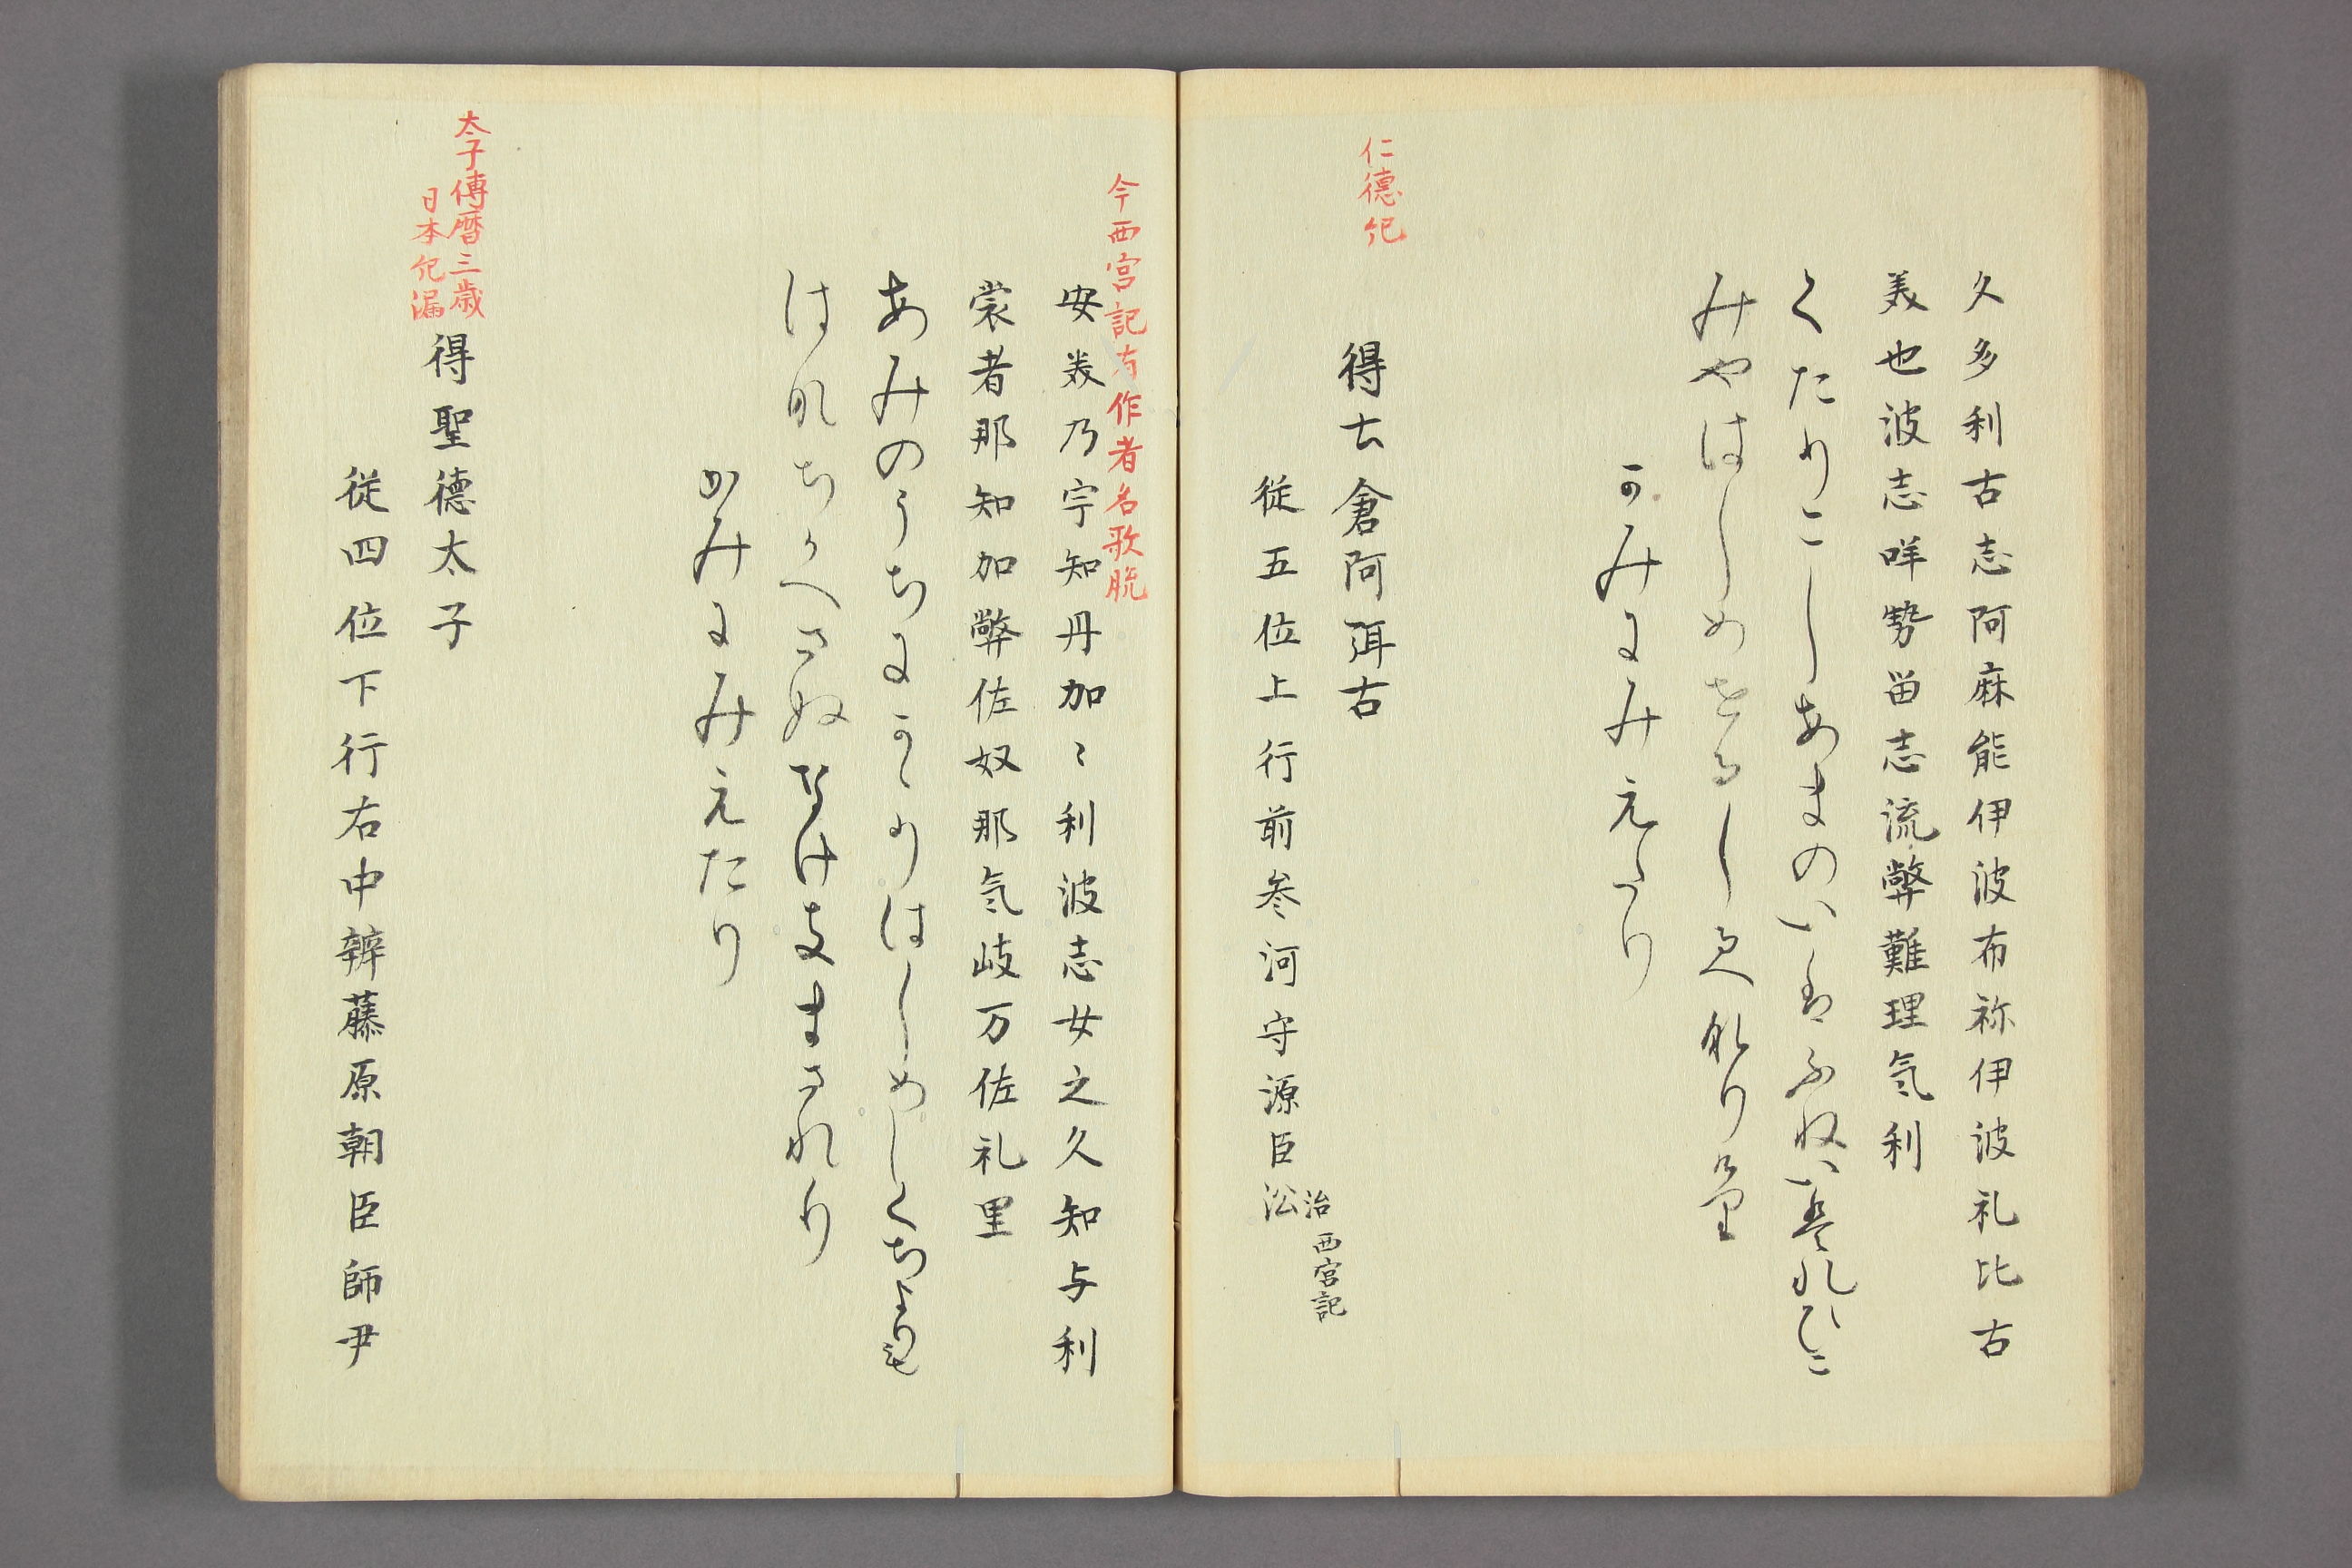 久多利古志阿麻能伊波布祢伊波礼比古
美也波志咩勢留志流弊難理氣利
くたりこしあまのいはふねいはれひこ
みやはしめせるしるへなりけり
かみにみえたり
仁德紀
得大倉阿弭古
従五位上行前参河守源臣㳂
治
西宮記
今西宮記有作者名歌脱
安美乃宇知丹加〻利波志女之久知与利
裳者那知加弊佐奴那氣岐万佐礼里
あみのうちにかゝりはしめしくちよりも
はなちかへさぬなけきまされり
かみにみえたり
太子傳暦三歳
日本紀漏
得聖德太子
従四位下行右中辨藤原朝臣師尹